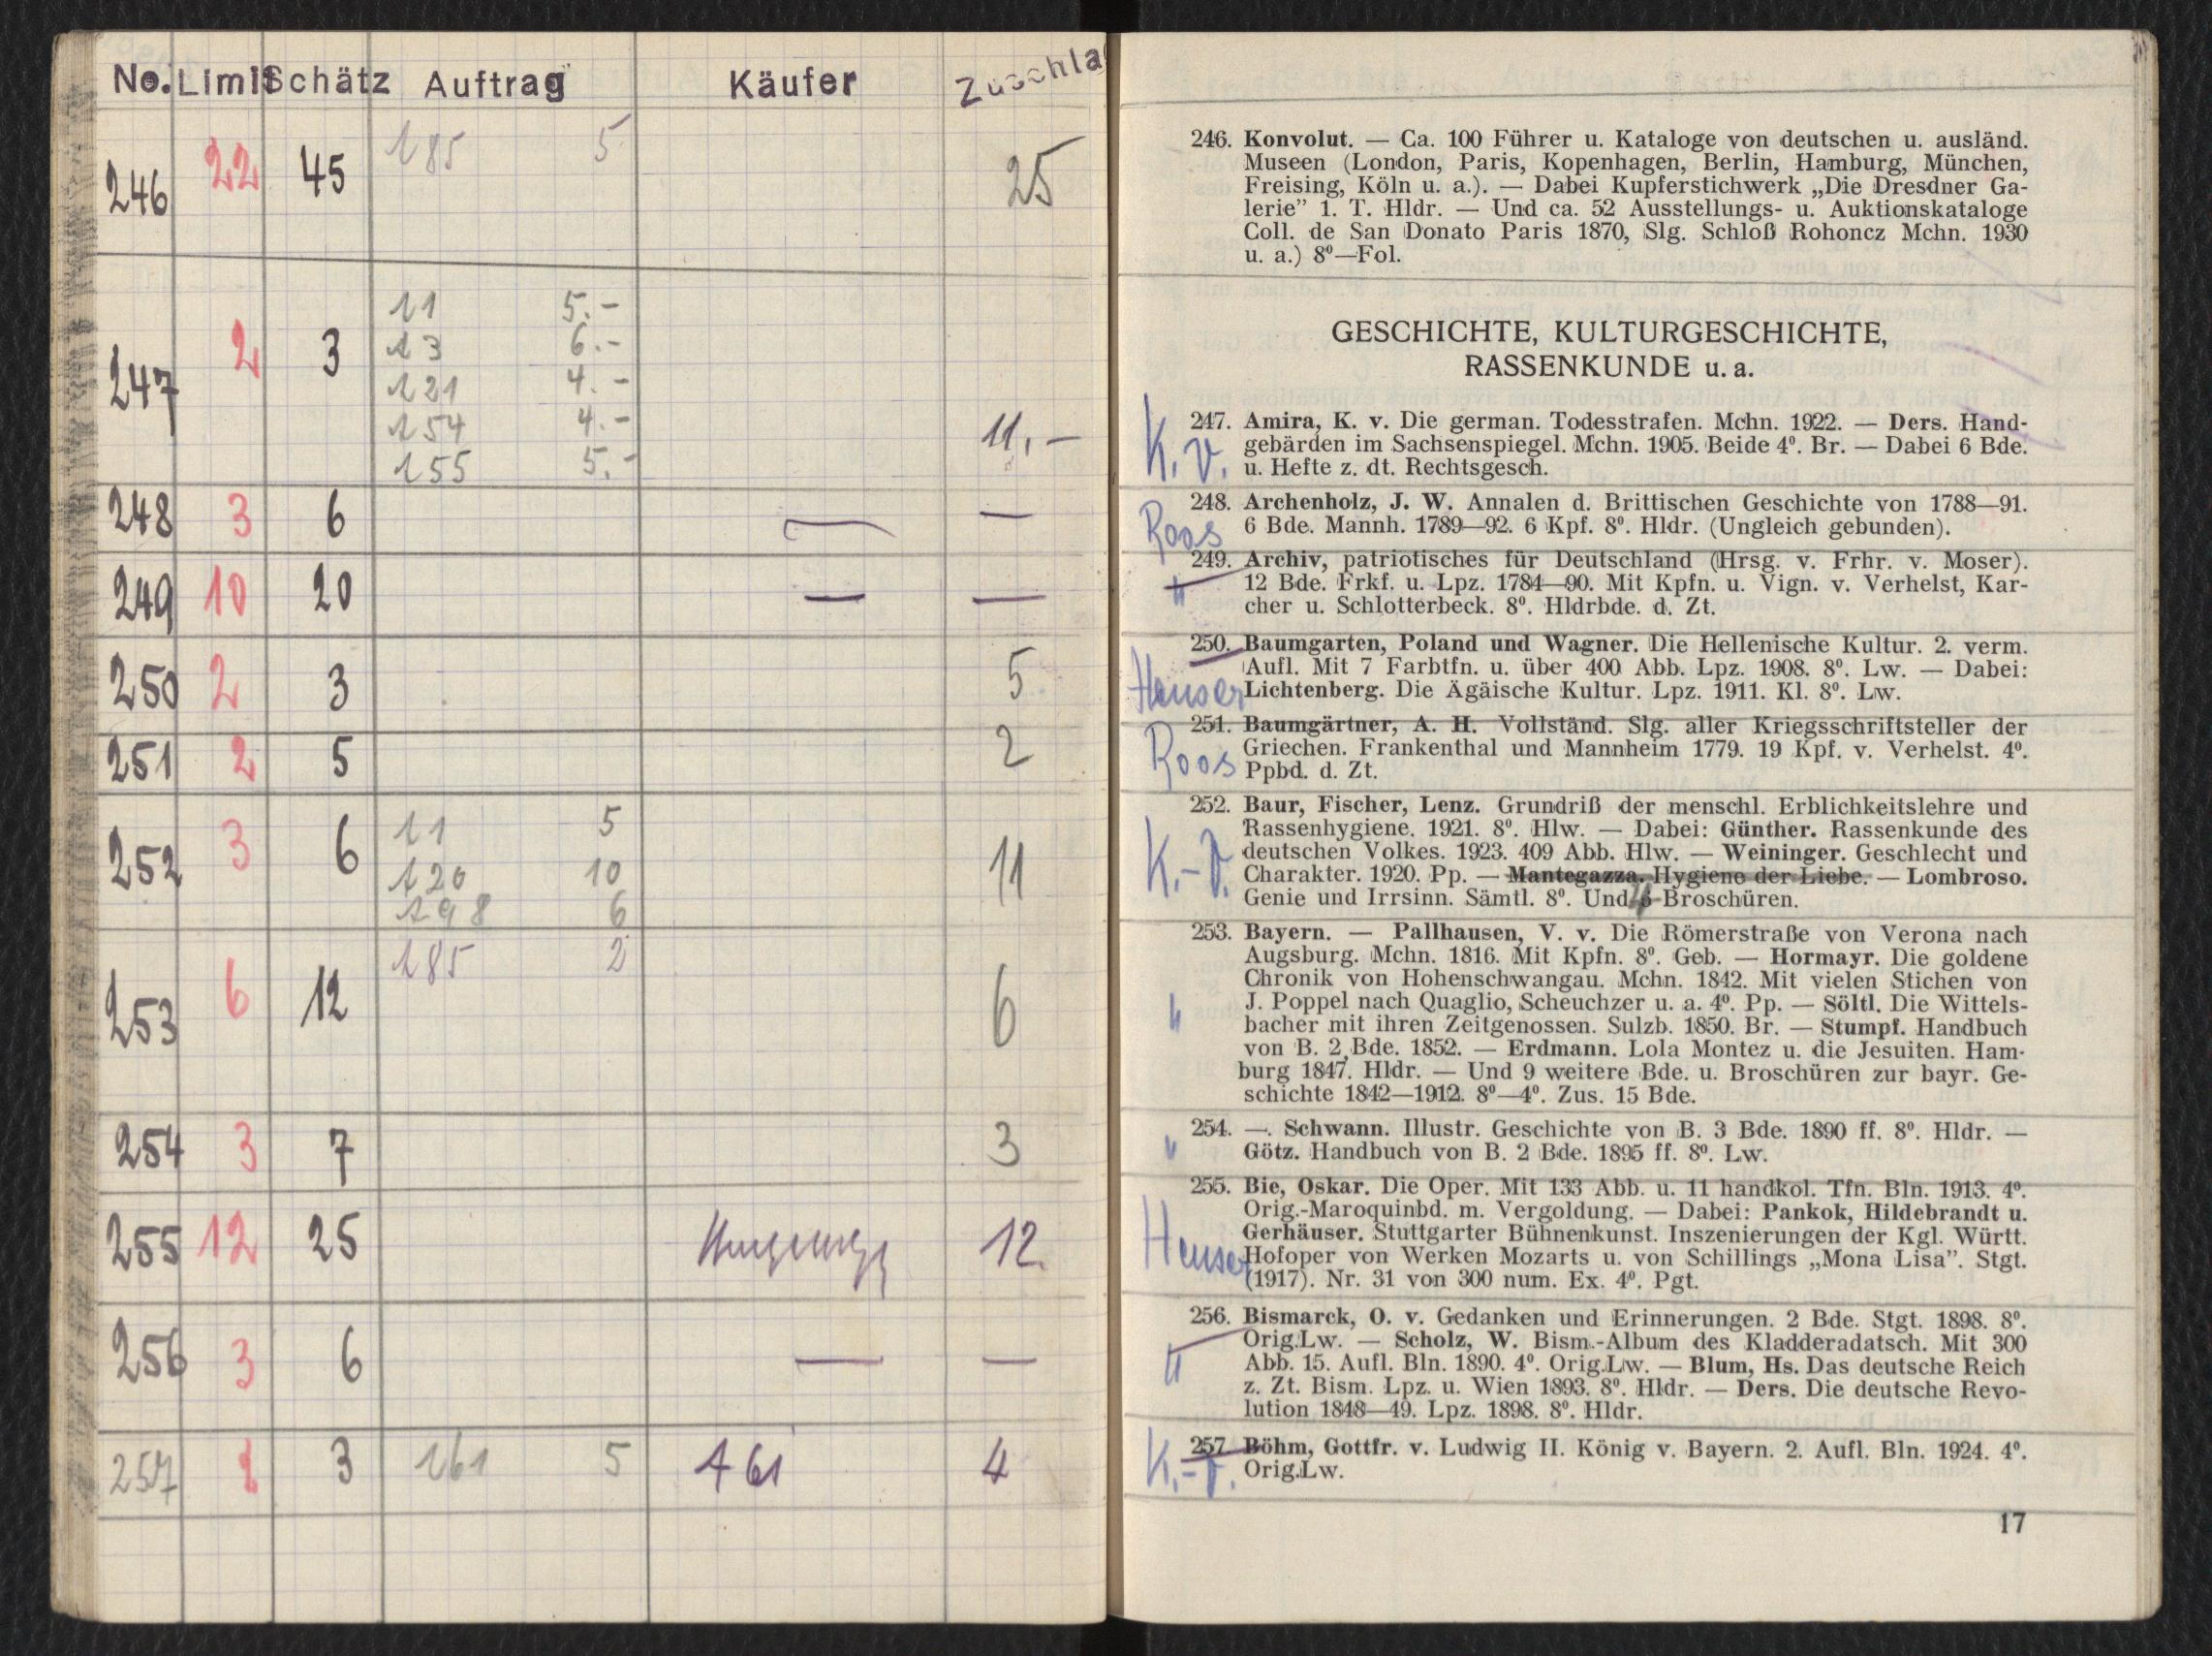 No. Limit Schätz Auftrag Käufer Zuschla
246 22 45 185 5 25
247 2 3 11 5.- 11.-
13 6.-
121 4.-
154 4.-
155 5.-
248 3 6 — —
249 10 20 — —
250 2 3 5
251 2 5 2
252 3 6 11 5 11
120 10
198 6
253 6 12 185 2 6
254 3 7 3
255 12 25 12.
256 3 6 — —
257 3 161 5 161 4
246. Konvolut. — Ca. 100 Führer u. Kataloge von deutschen u. ausländ.
Museen (London, Paris, Kopenhagen, Berlin, Hamburg, München,
Freising, Köln u. a.). — Dabei Kupferstichwerk „Die Dresdner Ga-
lerie” 1. T. Hldr. — Und ca. 52 Ausstellungs- u. Auktionskataloge
Coll. de San Donato Paris 1870, Slg. Schloß Rohoncz Mchn. 1930
u. a.) 8⁰—Fol.
GESCHICHTE, KULTURGESCHICHTE,
RASSENKUNDE u. a.
K. V.
247. Amira, K. v. Die german. Todesstrafen. Mchn. 1922. — Ders. Hand-
gebärden im Sachsenspiegel. Mchn. 1905. Beide 4⁰. Br. — Dabei 6 Bde.
u. Hefte z. dt. Rechtsgesch.
Roos
248. Archenholz, J. W. Annalen d. Brittischen Geschichte von 1788—91.
6 Bde. Mannh. 1789—92. 6 Kpf. 8⁰. Hldr. (Ungleich gebunden).
"
249. Archiv, patriotisches für Deutschland (Hrsg. v. Frhr. v. Moser).
12 Bde. Frkf. u. Lpz. 1784—90. Mit Kpfn. u. Vign. v. Verhelst, Kar-
cher u. Schlotterbeck. 8⁰. Hldrbde. d. Zt.
Heuser
250. Baumgarten, Poland und Wagner. Die Hellenische Kultur. 2. verm.
Aufl. Mit 7 Farbtfn. u. über 400 Abb. Lpz. 1908. 8⁰. Lw. — Dabei:
Lichtenberg. Die Ägäische Kultur. Lpz. 1911. Kl. 8⁰. Lw.
Roos
251. Baumgärtner, A. H. Vollständ. Slg. aller Kriegsschriftsteller der
Griechen. Frankenthal und Mannheim 1779. 19 Kpf. v. Verhelst. 4⁰.
Ppbd. d. Zt.
K.-V.
252. Baur, Fischer, Lenz. Grundriß der menschl. Erblichkeitslehre und
Rassenhygiene. 1921. 8⁰. Hlw. — Dabei: Günther. Rassenkunde des
deutschen Volkes. 1923. 409 Abb. Hlw. — Weininger. Geschlecht und
Charakter. 1920. Pp. — Mantegazza. Hygiene der Liebe. — Lombroso.
Genie und Irrsinn. Sämtl. 8⁰. Und 4 Broschüren.
"
253. Bayern. — Pallhausen, V. v. Die Römerstraße von Verona nach
Augsburg. Mchn. 1816. Mit Kpfn. 8⁰. Geb. — Hormayr. Die goldene
Chronik von Hohenschwangau. Mchn. 1842. Mit vielen Stichen von
J. Poppel nach Quaglio, Scheuchzer u. a. 4⁰. Pp. — Söltl. Die Wittels-
bacher mit ihren Zeitgenossen. Sulzb. 1850. Br. — Stumpf. Handbuch
von B. 2 Bde. 1852. — Erdmann. Lola Montez u. die Jesuiten. Ham-
burg 1847. Hldr. — Und 9 weitere Bde. u. Broschüren zur bayr. Ge-
schichte 1842—1912. 8⁰—4⁰. Zus. 15 Bde.
"
254. —. Schwann. Illustr. Geschichte von B. 3 Bde. 1890 ff. 8⁰. Hldr. —
Götz. Handbuch von B. 2 Bde. 1895 ff. 8⁰. Lw.
Heuser
255. Bie, Oskar. Die Oper. Mit 133 Abb. u. 11 handkol. Tfn. Bln. 1913. 4⁰.
Orig.-Maroquinbd. m. Vergoldung. — Dabei: Pankok, Hildebrandt u.
Gerhäuser. Stuttgarter Bühnenkunst. Inszenierungen der Kgl. Württ.
Hofoper von Werken Mozarts u. von Schillings „Mona Lisa”. Stgt.
(1917). Nr. 31 von 300 num. Ex. 4⁰. Pgt.
"
256. Bismarck, O. v. Gedanken und Erinnerungen. 2 Bde. Stgt. 1898. 8⁰.
Orig.Lw. — Scholz, W. Bism.-Album des Kladderadatsch. Mit 300
Abb. 15. Aufl. Bln. 1890. 4⁰. Orig.Lw. — Blum, Hs. Das deutsche Reich
z. Zt. Bism. Lpz. u. Wien 1893. 8⁰. Hldr. — Ders. Die deutsche Revo-
lution 1848—49. Lpz. 1898. 8⁰. Hldr.
K.-V.
257 Böhm, Gottfr. v. Ludwig II. König v. Bayern. 2. Aufl. Bln. 1924. 4⁰.
Orig.Lw.
17